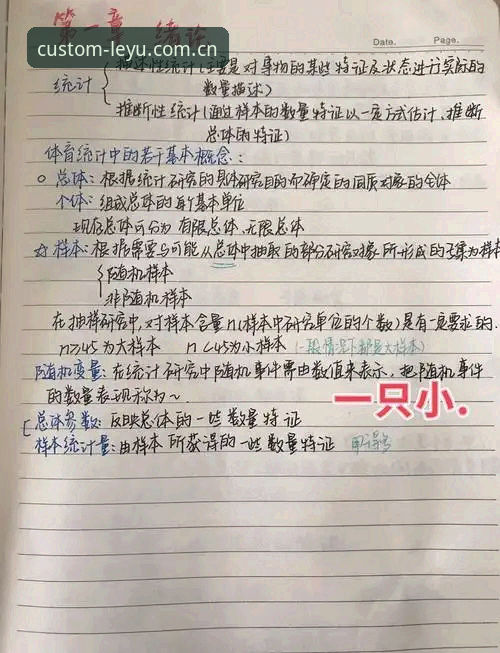 第一章 绪论
custom-leyu.com.cn
Date. Page.
描述性统计(主要是对事物的某些特征及状态进行实际的
数量描述)
统计
推断性统计(通过样本的数量特征以一定方式估计、推断
总体的特征)
体育统计中的若干基本概念:
总体:根据统计研究的具体研究目的而确定的同质对象的全体
个体:组成总体的每个基本单位
现存总体可分为 有限总体、无限总体
☆ 样本:根据需要与可能从总体中抽取的部分研究对象所形成的子集为样本
随机样本
非随机样本
在抽样研究中,对样本含量n(样本中研究单位的个数)是有一定要求的.
n≥45为大样本 n<45为小样本 (一般情况下都是大样本)
随机变量:在统计研究中随机事件需由数值来表示,把随机事件
的数量表现称为~.
一只小.
总体参数:反映总体的一些数量特征
样本统计量:由样本所获得的一些数量特征